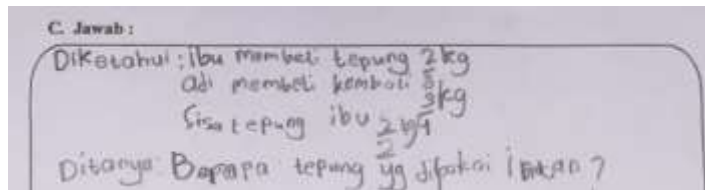 C. Jawab :
Diketahui : ibu membeli tepung 2 kg
adi membeli kembali kg
Sisa tepung ibu 2
Ditanya: Berapa tepung yg dipakai ?